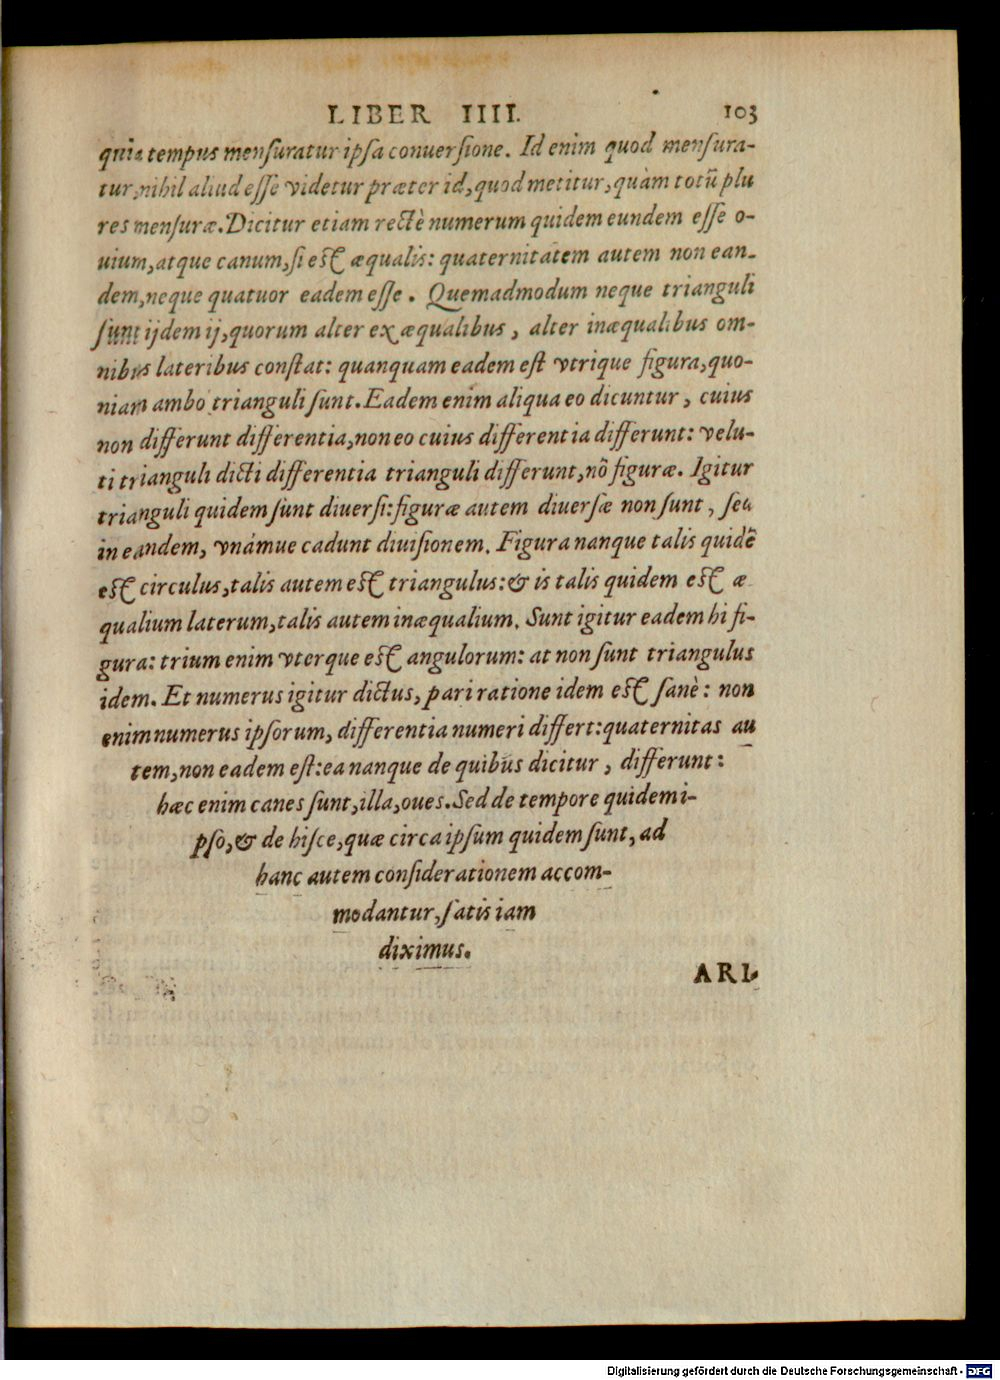 LIBER IIII. 103
quia tempus menſuratur ipſa conuerſione. Id enim quod menſura-
tur, nihil aliud eſſe videtur præter id, quod metitur, quàm totũ plu
res menſuræ. Dicitur etiam rectè numerum quidem eundem eſſe o-
uium, atque canum, ſi eſt æqualis: quaternitatem autem non ean-
dem, neque quatuor eadem eſſe. Quemadmodum neque trianguli
ſunt ijdem ij, quorum alter ex æqualibus, alter inæqualibus om-
nibus lateribus conſtat: quanquam eadem eſt vtrique figura, quo-
niam ambo trianguli ſunt. Eadem enim aliqua eo dicuntur, cuius
non differunt differentia, non eo cuius differentia differunt: velu-
ti trianguli dicti differentia trianguli differunt, nõ figuræ. Igitur
trianguli quidem ſunt diuerſi: figuræ autem diuerſæ non ſunt, ſed
in eandem, vnámue cadunt diuiſionem. Figura nanque talis quidẽ
eſt circulus, talis autem eſt triangulus: & is talis quidem eſt æ
qualium laterum, talis autem inæqualium. Sunt igitur eadem hi fi-
gura: trium enim vterque eſt angulorum: at non ſunt triangulus
idem. Et numerus igitur dictus, pari ratione idem eſt ſanè: non
enim numerus ipſorum, differentia numeri differt: quaternitas au
tem, non eadem eſt: ea nanque de quibus dicitur, differunt:
hæc enim canes ſunt, illa, oues. Sed de tempore quidem i-
pſo, & de hiſce, quæ circa ipſum quidem ſunt, ad
hanc autem conſiderationem accom-
modantur, ſatis iam
diximus.
ARI-
Digitalisierung gefördert durch die Deutsche Forschungsgemeinschaft - DFG